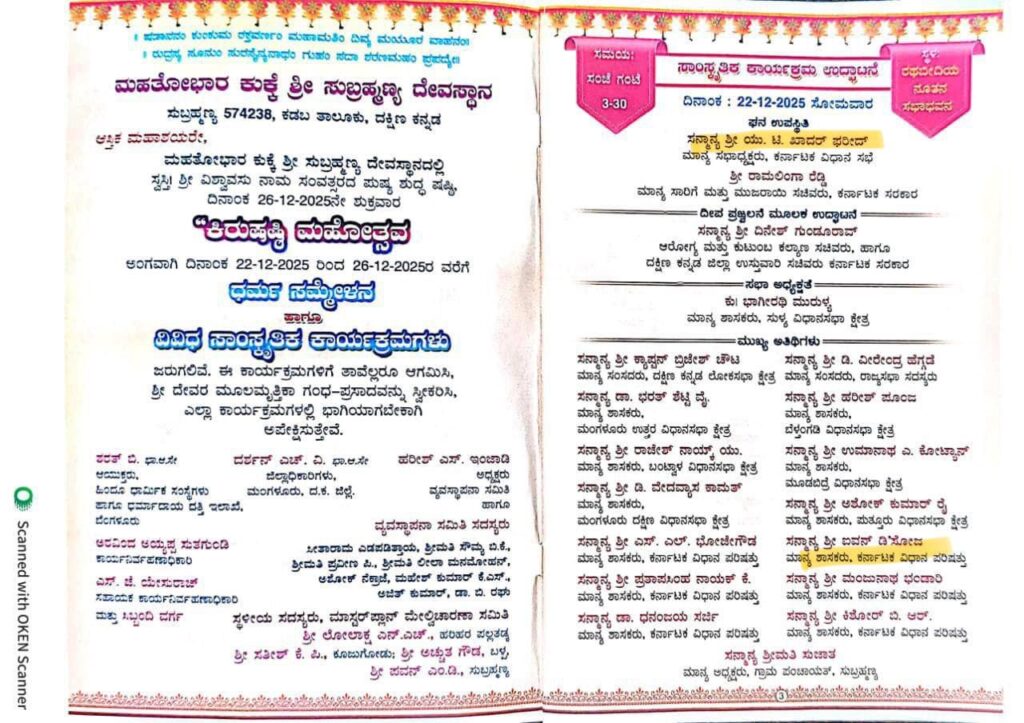 । ಷಡಾನನಂ ಕುಂಕುಮ ರಕ್ತವರ್ಣಂ ಮಹಾಮತಿಂ ದಿವ್ಯ ಮಯೂರ ವಾಹನಂ।
। ರುದ್ರಸ್ಯ ಸೂನುಂ ಸುರಸೈನ್ಯನಾಥಂ ಗುಹಂ ಸದಾ ಶರಣಮಹಂ ಪ್ರಪದ್ಯೇ॥
ಮಹತೋಭಾರ ಕುಕ್ಕೆ ಶ್ರೀ ಸುಬ್ರಹ್ಮಣ್ಯ ದೇವಸ್ಥಾನ
ಸುಬ್ರಹ್ಮಣ್ಯ 574238, ಕಡಬ ತಾಲೂಕು, ದಕ್ಷಿಣ ಕನ್ನಡ
ಆಸ್ತಿಕ ಮಹಾಶಯರೇ,
ಮಹತೋಭಾರ ಕುಕ್ಕೆ ಶ್ರೀ ಸುಬ್ರಹ್ಮಣ್ಯ ದೇವಸ್ಥಾನದಲ್ಲಿ
ಸ್ವಸ್ತಿ। ಶ್ರೀ ವಿಶ್ವಾವಸು ನಾಮ ಸಂವತ್ಸರದ ಪುಷ್ಯ ಶುದ್ಧ ಷಷ್ಠಿ,
ದಿನಾಂಕ 26-12-2025ನೇ ಶುಕ್ರವಾರ
“ಕಿರುಷಷ್ಠಿ ಮಹೋತ್ಸವ
ಅಂಗವಾಗಿ ದಿನಾಂಕ 22-12-2025 ರಿಂದ 26-12-2025ರ ವರೆಗೆ
ಧರ್ಮ ಸಮ್ಮೇಳನ
ಹಾಗೂ
ವಿವಿಧ ಸಾಂಸ್ಕೃತಿಕ ಕಾರ್ಯಕ್ರಮಗಳು
ಜರುಗಲಿವೆ. ಈ ಕಾರ್ಯಕ್ರಮಗಳಿಗೆ ತಾವೆಲ್ಲರೂ ಆಗಮಿಸಿ,
ಶ್ರೀ ದೇವರ ಮೂಲಮೃತ್ತಿಕಾ ಗಂಧ-ಪ್ರಸಾದವನ್ನು ಸ್ವೀಕರಿಸಿ,
ಎಲ್ಲಾ ಕಾರ್ಯಕ್ರಮಗಳಲ್ಲಿ ಭಾಗಿಯಾಗಬೇಕಾಗಿ
ಅಪೇಕ್ಷಿಸುತ್ತೇವೆ.
ಶರತ್ ಬಿ. ಭಾ.ಆ.ಸೇ
ಆಯುಕ್ತರು,
ಹಿಂದೂ ಧಾರ್ಮಿಕ ಸಂಸ್ಥೆಗಳು
ಹಾಗೂ ಧರ್ಮಾದಾಯ ದತ್ತಿ ಇಲಾಖೆ,
ಬೆಂಗಳೂರು
ದರ್ಶನ್ ಎಚ್. ವಿ. ಭಾ.ಆ.ಸೇ
ಜಿಲ್ಲಾಧಿಕಾರಿಗಳು,
ಮಂಗಳೂರು, ದ.ಕ. ಜಿಲ್ಲೆ.
ಹರೀಶ್ ಎಸ್. ಇಂಜಾಡಿ
ಅಧ್ಯಕ್ಷರು
ವ್ಯವಸ್ಥಾಪನಾ ಸಮಿತಿ
ಹಾಗೂ
ವ್ಯವಸ್ಥಾಪನಾ ಸಮಿತಿ ಸದಸ್ಯರು
ಅರವಿಂದ ಅಯ್ಯಪ್ಪ ಸುತಗುಂಡಿ
ಕಾರ್ಯನಿರ್ವಹಣಾಧಿಕಾರಿ
ಎಸ್. ಜೆ. ಯೇಸುರಾಜ್
ಸಹಾಯಕ ಕಾರ್ಯನಿರ್ವಹಣಾಧಿಕಾರಿ
ಮತ್ತು ಸಿಬ್ಬಂದಿ ವರ್ಗ
ಸೀತಾರಾಮ ಎಡಪಡಿತ್ತಾಯ, ಶ್ರೀಮತಿ ಸೌಮ್ಯ ಬಿ.ಕೆ.,
ಶ್ರೀಮತಿ ಪ್ರವೀಣ ಪಿ., ಶ್ರೀಮತಿ ಲೀಲಾ ಮನಮೋಹನ್,
ಅಶೋಕ್ ನೆಕ್ರಾಜೆ, ಮಹೇಶ್ ಕುಮಾರ್ ಕೆ.ಎಸ್.,
ಅಜಿತ್ ಕುಮಾರ್, ಡಾ. ಬಿ. ರಘು
ಸ್ಥಳೀಯ ಸದಸ್ಯರು, ಮಾಸ್ಟರ್‌ಪ್ಲಾನ್ ಮೇಲ್ವಿಚಾರಣಾ ಸಮಿತಿ
ಶ್ರೀ ಲೋಲಾಕ್ಷ ಎನ್.ಎಚ್., ಹರಿಹರ ಪಲ್ಲತಡ್ಕ
ಶ್ರೀ ಸತೀಶ್ ಕೆ. ಪಿ., ಕೂಜುಗೋಡು; ಶ್ರೀ ಅಚ್ಚುತ ಗೌಡ, ಬಳ್ಪ,
ಶ್ರೀ ಪವನ್ ಎಂ.ಡಿ., ಸುಬ್ರಹ್ಮಣ್ಯ
ಸಮಯ:
ಸಂಜೆ ಗಂಟೆ
3-30
ಸಾಂಸ್ಕೃತಿಕ ಕಾರ್ಯಕ್ರಮ ಉದ್ಘಾಟನೆ
ದಿನಾಂಕ : 22-12-2025 ಸೋಮವಾರ
ಸ್ಥಳ:
ರಥಬೀದಿಯ
ನೂತನ
ಸಭಾಭವನ
ಘನ ಉಪಸ್ಥಿತಿ
ಸನ್ಮಾನ್ಯ ಶ್ರೀ ಯು. ಟಿ. ಖಾದರ್ ಫರೀದ್
ಮಾನ್ಯ ಸಭಾಧ್ಯಕ್ಷರು, ಕರ್ನಾಟಕ ವಿಧಾನ ಸಭೆ
ಶ್ರೀ ರಾಮಲಿಂಗಾ ರೆಡ್ಡಿ
ಮಾನ್ಯ ಸಾರಿಗೆ ಮತ್ತು ಮುಜರಾಯಿ ಸಚಿವರು, ಕರ್ನಾಟಕ ಸರಕಾರ
ದೀಪ ಪ್ರಜ್ವಲನೆ ಮೂಲಕ ಉದ್ಘಾಟನೆ
ಸನ್ಮಾನ್ಯ ಶ್ರೀ ದಿನೇಶ್ ಗುಂಡೂರಾವ್
ಆರೋಗ್ಯ ಮತ್ತು ಕುಟುಂಬ ಕಲ್ಯಾಣ ಸಚಿವರು, ಹಾಗೂ
ದಕ್ಷಿಣ ಕನ್ನಡ ಜಿಲ್ಲಾ ಉಸ್ತುವಾರಿ ಸಚಿವರು ಕರ್ನಾಟಕ ಸರಕಾರ
ಸಭಾ ಅಧ್ಯಕ್ಷತೆ
ಕು। ಭಾಗೀರಥಿ ಮುರುಳ್ಯ
ಮಾನ್ಯ ಶಾಸಕರು, ಸುಳ್ಯ ವಿಧಾನಸಭಾ ಕ್ಷೇತ್ರ
ಮುಖ್ಯ ಅತಿಥಿಗಳು
ಸನ್ಮಾನ್ಯ ಶ್ರೀ ಕ್ಯಾಪ್ಟನ್ ಬ್ರಿಜೇಶ್ ಚೌಟ
ಮಾನ್ಯ ಸಂಸದರು, ದಕ್ಷಿಣ ಕನ್ನಡ ಲೋಕಸಭಾ ಕ್ಷೇತ್ರ
ಸನ್ಮಾನ್ಯ ಡಾ. ಭರತ್ ಶೆಟ್ಟಿ ವೈ.
ಮಾನ್ಯ ಶಾಸಕರು,
ಮಂಗಳೂರು ಉತ್ತರ ವಿಧಾನಸಭಾ ಕ್ಷೇತ್ರ
ಸನ್ಮಾನ್ಯ ಶ್ರೀ ರಾಜೇಶ್ ನಾಯ್ಕ್ ಯು.
ಮಾನ್ಯ ಶಾಸಕರು, ಬಂಟ್ವಾಳ ವಿಧಾನಸಭಾ ಕ್ಷೇತ್ರ
ಸನ್ಮಾನ್ಯ ಶ್ರೀ ಡಿ. ವೇದವ್ಯಾಸ ಕಾಮತ್
ಮಾನ್ಯ ಶಾಸಕರು,
ಮಂಗಳೂರು ದಕ್ಷಿಣ ವಿಧಾನಸಭಾ ಕ್ಷೇತ್ರ
ಸನ್ಮಾನ್ಯ ಶ್ರೀ ಎಸ್. ಎಲ್. ಭೋಜೇಗೌಡ
ಮಾನ್ಯ ಶಾಸಕರು, ಕರ್ನಾಟಕ ವಿಧಾನ ಪರಿಷತ್ತು
ಸನ್ಮಾನ್ಯ ಶ್ರೀ ಪ್ರತಾಪಸಿಂಹ ನಾಯಕ್ ಕೆ.
ಮಾನ್ಯ ಶಾಸಕರು, ಕರ್ನಾಟಕ ವಿಧಾನ ಪರಿಷತ್ತು
ಸನ್ಮಾನ್ಯ ಡಾ. ಧನಂಜಯ ಸರ್ಜಿ
ಮಾನ್ಯ ಶಾಸಕರು, ಕರ್ನಾಟಕ ವಿಧಾನ ಪರಿಷತ್ತು
ಸನ್ಮಾನ್ಯ ಶ್ರೀ ಡಿ. ವೀರೇಂದ್ರ ಹೆಗ್ಗಡೆ
ಮಾನ್ಯ ಸಂಸದರು, ರಾಜ್ಯಸಭಾ ಸದಸ್ಯರು
ಸನ್ಮಾನ್ಯ ಶ್ರೀ ಹರೀಶ್ ಪೂಂಜ
ಮಾನ್ಯ ಶಾಸಕರು,
ಬೆಳ್ತಂಗಡಿ ವಿಧಾನಸಭಾ ಕ್ಷೇತ್ರ
ಸನ್ಮಾನ್ಯ ಶ್ರೀ ಉಮಾನಾಥ ಎ. ಕೋಟ್ಯಾನ್
ಮಾನ್ಯ ಶಾಸಕರು,
ಮೂಡಬಿದ್ರೆ ವಿಧಾನಸಭಾ ಕ್ಷೇತ್ರ
ಸನ್ಮಾನ್ಯ ಶ್ರೀ ಅಶೋಕ್ ಕುಮಾರ್ ರೈ
ಮಾನ್ಯ ಶಾಸಕರು, ಪುತ್ತೂರು ವಿಧಾನಸಭಾ ಕ್ಷೇತ್ರ
ಸನ್ಮಾನ್ಯ ಶ್ರೀ ಐವನ್ ಡಿ'ಸೋಜ
ಮಾನ್ಯ ಶಾಸಕರು, ಕರ್ನಾಟಕ ವಿಧಾನ ಪರಿಷತ್ತು
ಸನ್ಮಾನ್ಯ ಶ್ರೀ ಮಂಜುನಾಥ ಭಂಡಾರಿ
ಮಾನ್ಯ ಶಾಸಕರು, ಕರ್ನಾಟಕ ವಿಧಾನ ಪರಿಷತ್ತು
ಸನ್ಮಾನ್ಯ ಶ್ರೀ ಕಿಶೋರ್ ಬಿ. ಆರ್.
ಮಾನ್ಯ ಶಾಸಕರು, ಕರ್ನಾಟಕ ವಿಧಾನ ಪರಿಷತ್ತು
ಸನ್ಮಾನ್ಯ ಶ್ರೀಮತಿ ಸುಜಾತ
ಮಾನ್ಯ ಅಧ್ಯಕ್ಷರು, ಗ್ರಾಮ ಪಂಚಾಯತ್, ಸುಬ್ರಹ್ಮಣ್ಯ
3
Scanned with OKEN Scanner